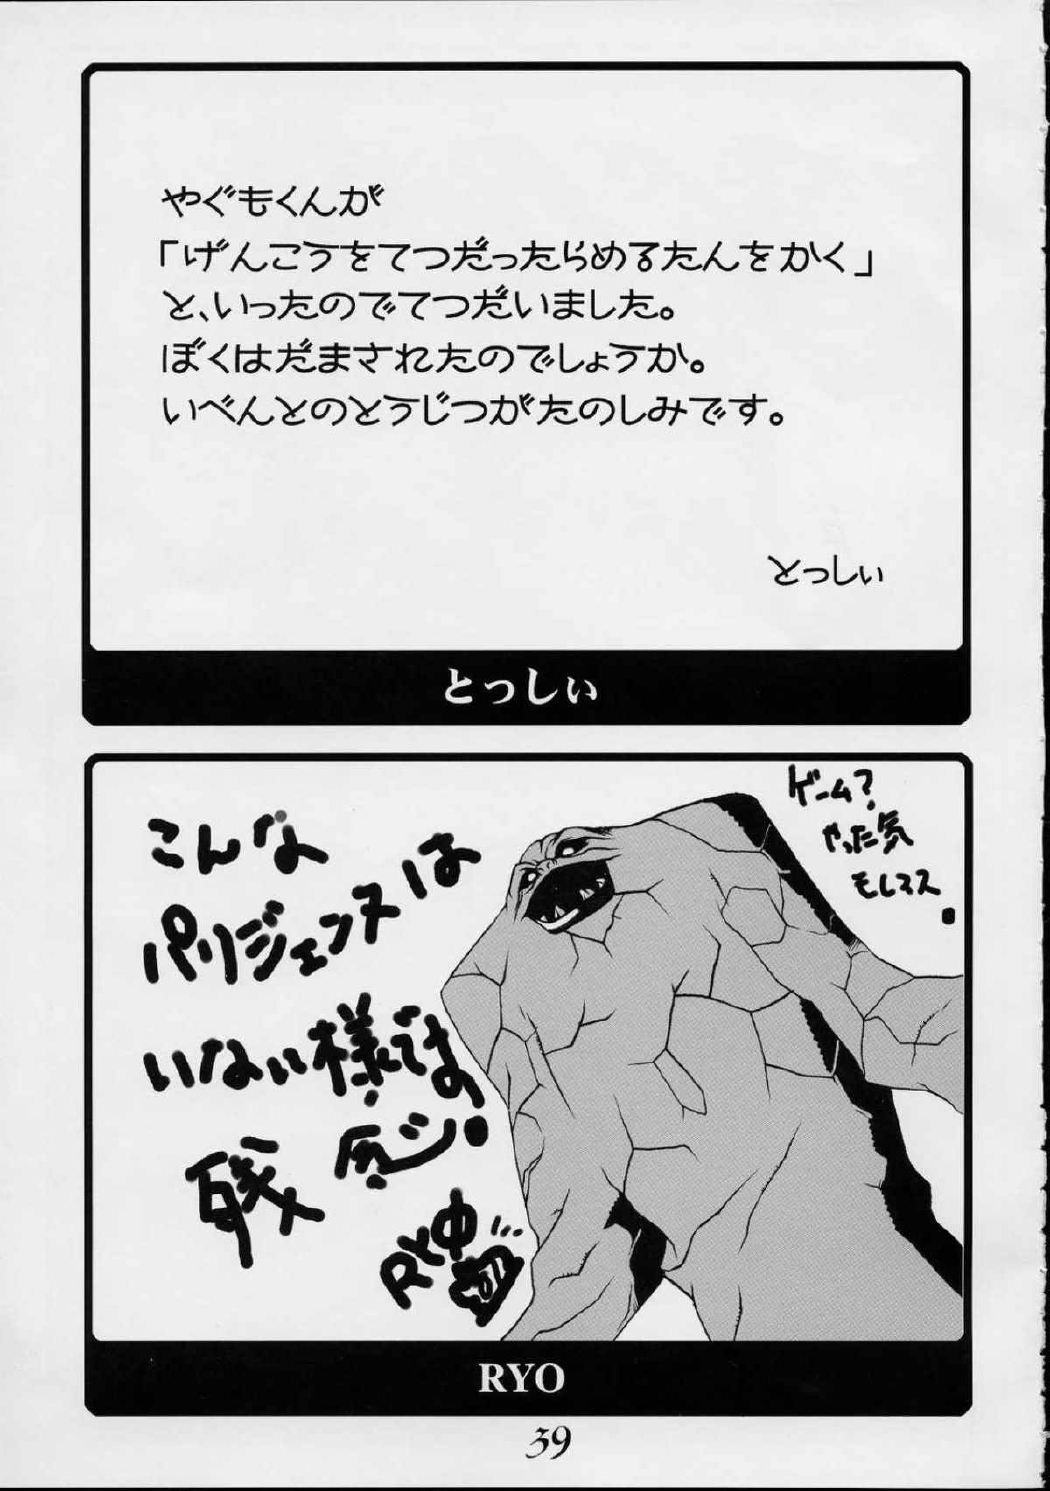 やぐもくんが
「げんこうをてつだったらめるたんをかく」
と、いったのでてつだいました。
ぼくはだまされたのでしょうか。
いべんとのとうじつがたのしみです。
とっしぃ
とっしぃ
ゲーム?
やった気
モレマス
こんな
パリジェンヌは
いない様では
残念ジ!
RYO
39